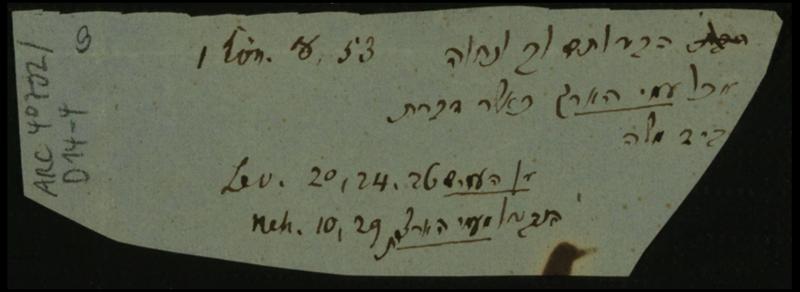 1 Kön. 8, 53 הבדלתם לך לנחלה
מכל עמי הארץ כאשר דברת
ביד משה
Lev. 20, 24. 26 מן העמים
Neh. 10, 29 הנבדל מעמי הארצות
ARC 4° 792/
D14-4